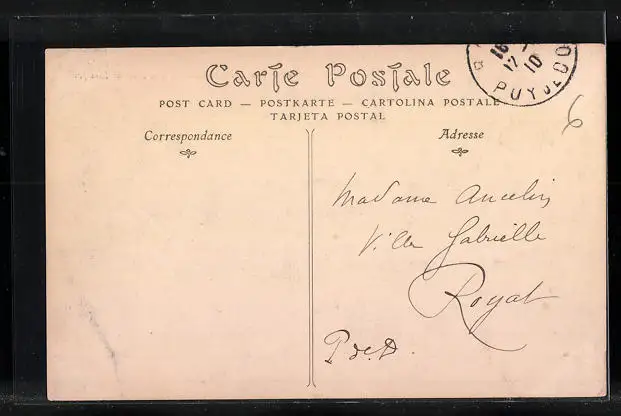 Carte Postale
POST CARD — POSTKARTE — CARTOLINA POSTALE
TARJETA POSTAL
Correspondance
Adresse
16
12 10
PUY DE DO
6
Madame Ancelin
Villa Gabrielle
Royat
P de D.